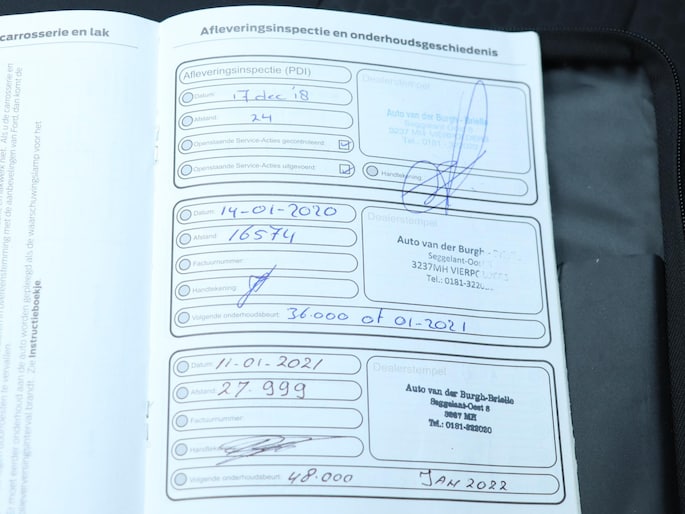 carrosserie en lak
Afleveringsinspectie en onderhoudsgeschiedenis
Afleveringsinspectie (PDI)
Datum: 17 dec '18
Afstand: 24
Openstaande Service-Acties gecontroleerd:
Openstaande Service-Acties uitgevoerd:
Dealerstempel
Auto van der Burgh-Brielle
Seggelant-Oost 8
3237 MH VIERPOLDERS
Tel.: 0181-322020
Handtekening:
Datum: 14-01-2020
Afstand: 16574
Factuurnummer:
Handtekening:
Volgende onderhoudsbeurt: 36.000 of 01-2021
Dealerstempel
Auto van der Burgh
Seggelant-Oost
3237MH VIERPOLDERS
Tel.: 0181-322
Datum: 11-01-2021
Afstand: 27.999
Factuurnummer:
Handtekening:
Volgende onderhoudsbeurt: 48.000 JAN 2022
Dealerstempel
Auto van der Burgh-Brielle
Seggelant-Oost 8
MH
Tel.: 0181-322020
als de waarschuwingslamp voor het
moet eerder onderhoud aan de auto worden gepleegd
olieverversingsinterval brandt. Zie Instructieboekje.